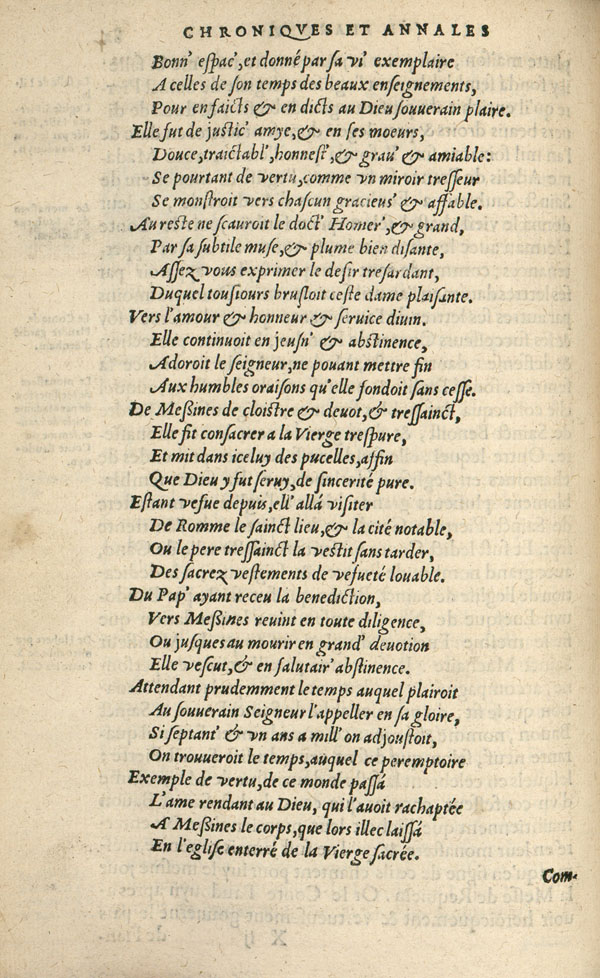 CHRONIQVES ET ANNALES
Bonn' espac', et donné par sa vi' exemplaire
A celles de son temps des beaux enseignements,
Pour en faicts & en dicts au Dieu souuerain plaire.
Elle fut de justic' amye, & en ses moeurs,
Douce, traictabl', honnest', & grau' & amiable:
Se pourtant de vertu, comme vn miroir tresseur
Se monstroit vers chascun gracieus' & affable.
Au reste ne scauroit le doct' Homer', & grand,
Par sa subtile muse, & plume bien disante,
Assez vous exprimer le desir tresardant,
Duquel tousiours brusloit ceste dame plaisante.
Vers l'amour & honneur & seruice diuin.
Elle continuoit en jeusn' & abstinence,
Adoroit le seigneur, ne pouant mettre fin
Aux humbles oraisons qu'elle fondoit sans cesse.
De Meßines de cloistre & deuot, & tressainct,
Elle fit consacrer a la Vierge trespure,
Et mit dans iceluy des pucelles, affin
Que Dieu y fut seruy, de sincerité pure.
Estant vefue depuis, ell' allá visiter
De Romme le sainct lieu, & la cité notable,
Ou le pere tressainct la vestit sans tarder,
Des sacrez vestements de vefueté louable.
Du Pap' ayant receu la benediction,
Vers Meßines reuint en toute diligence,
Ou jusques au mourir en grand' deuotion
Elle vescut, & en salutair' abstinence.
Attendant prudemment le temps auquel plairoit
Au souuerain Seigneur l'appeller en sa gloire,
Si septant' & vn ans a mill' on adjoustoit,
On trouueroit le temps, auquel ce peremptoire
Exemple de vertu, de ce monde passá
L'ame rendant au Dieu, qui l'auoit rachaptée
A Meßines le corps, que lors illec laissá
En l'eglise enterré de la Vierge sacrée.
Com-